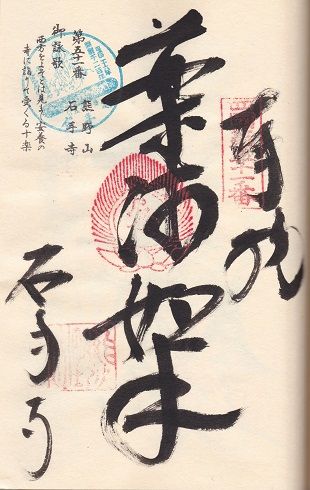 奉納
四国第五十一番
薬師如来
石手寺
第五十一番
熊野山
石手寺
御詠歌
西方をよそとは見まじ安養の
寺に詣りて受くる十楽